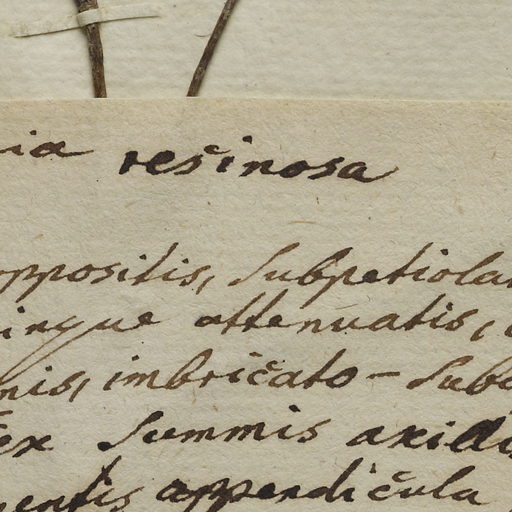 ia resinosa
oppositis, subpetiolar
inque attenuatis,
nis, imbricato-sub
ex summis axill
entis appendicula